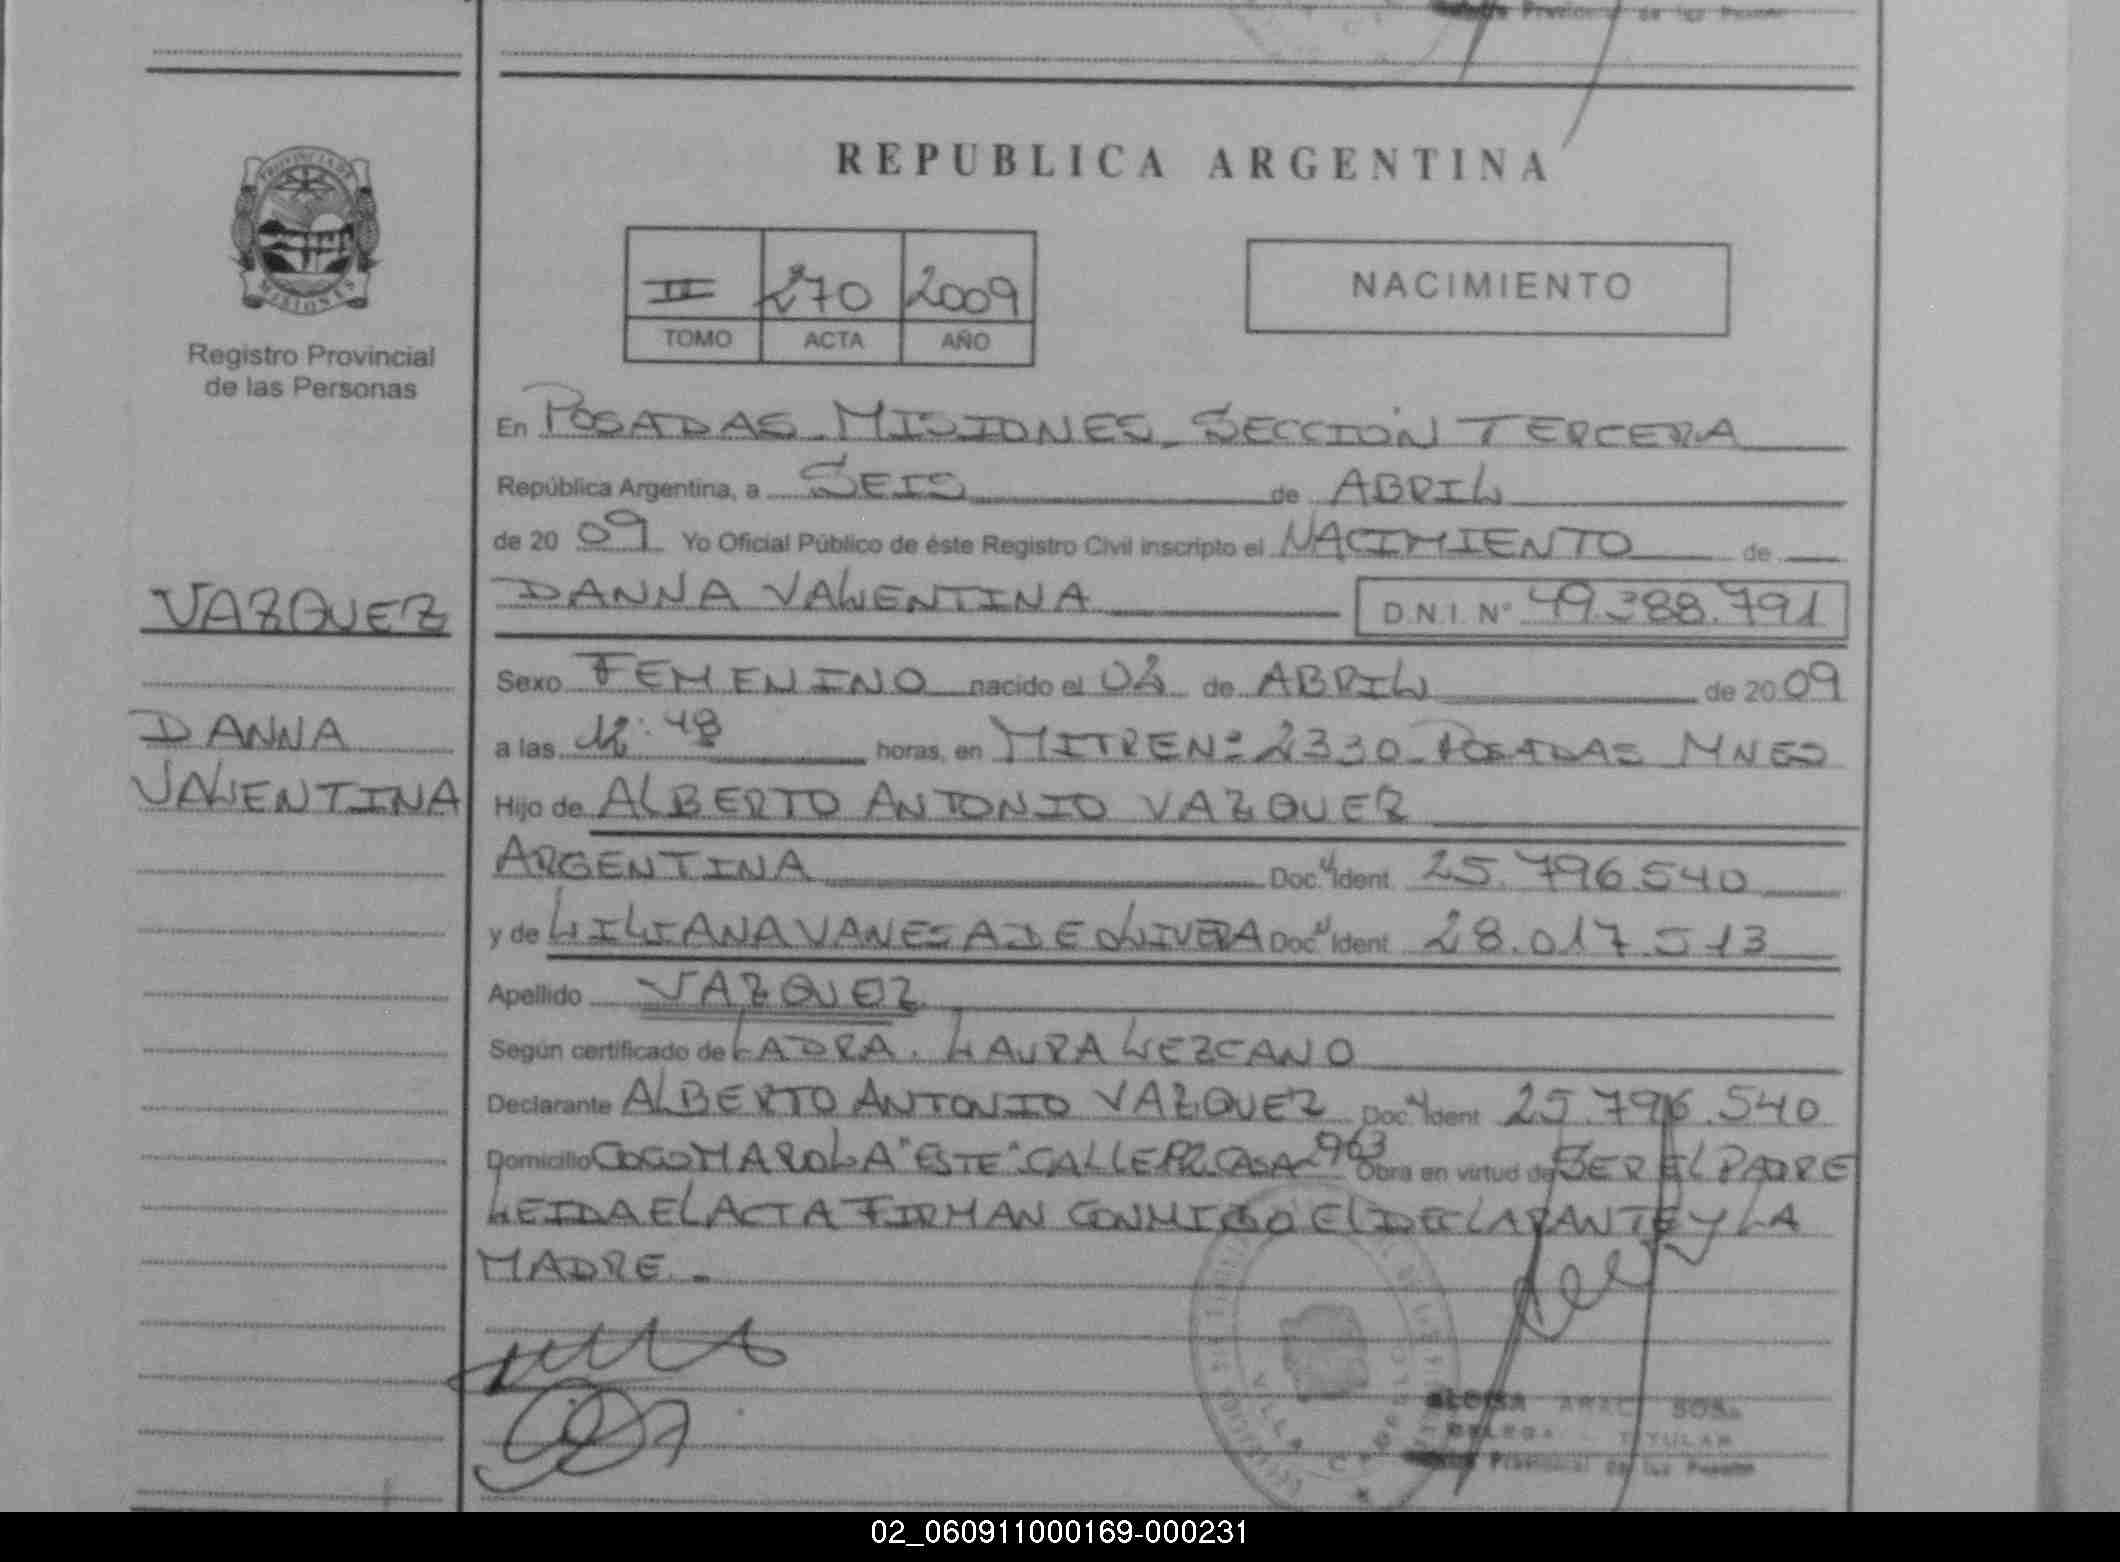 REPUBLICA ARGENTINA
PROVINCIA DE
MISIONES
Registro Provincial
de las Personas
II 270 2009
TOMO ACTA AÑO
NACIMIENTO
En POSADAS - MISIONES - SECCIÓN TERCERA
República Argentina, a SEIS de ABRIL
de 20 09 Yo Oficial Público de éste Registro Civil inscripto el NACIMIENTO de
VAZQUEZ
DANNA VALENTINA D.N.I. Nº 49.388.791
Sexo FEMENINO nacido el 02 de ABRIL de 20 09
DANNA
VALENTINA
a las 12:48 horas, en MITRE Nº 2330 - POSADAS MNES
Hijo de ALBERTO ANTONIO VAZQUEZ
ARGENTINA Doc. Ident. 25.796.540
y de LILIANA VANESA DE OLIVERA Doc. Ident. 28.017.513
Apellido VAZQUEZ
Según certificado de LA DRA. LAURA LEZCANO
Declarante ALBERTO ANTONIO VAZQUEZ Doc. Ident. 25.796.540
Domicilio COCOMAROLA "ESTE" CALLE CASA 2963 Obra en virtud de SER EL PADRE
LEIDA EL ACTA FIRMAN CONMIGO EL DECLARANTE Y LA
MADRE.-
VILLA CABELLO
SOSA
TITULAR
Provincial de las
02_060911000169-000231